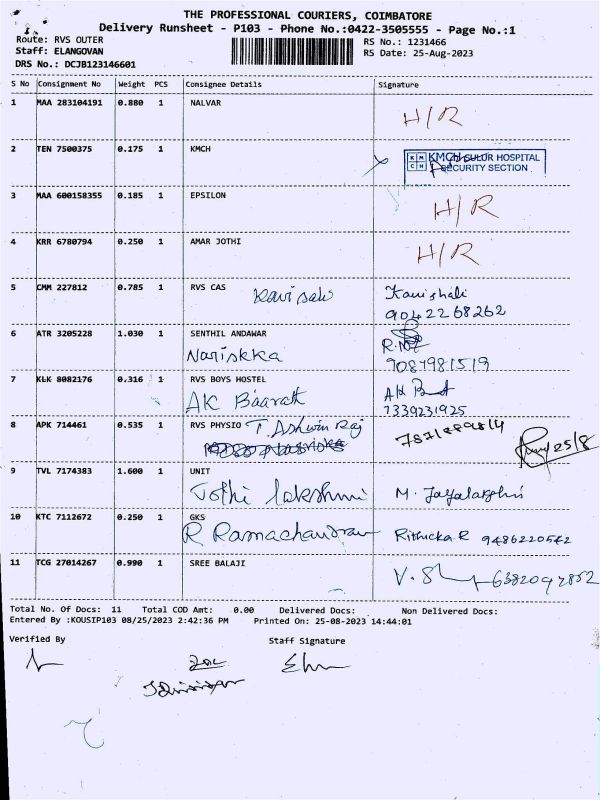 THE PROFESSIONAL COURIERS, COIMBATORE
Delivery Runsheet - P103 - Phone No.:0422-3505555 - Page No.:1
Route: RVS OUTER
RS No.: 1231466
Staff: ELANGOVAN
RS Date: 25-Aug-2023
DRS No.: DCJB123146601
S No Consignment No Weight PCS Consignee Details Signature
1 MAA 283104191 0.880 1 NALVAR H/R
2 TEN 7500375 0.175 1 KMCH KMCH SULUR HOSPITAL
SECURITY SECTION
3 MAA 600158355 0.185 1 EPSILON H/R
4 KRR 6780794 0.250 1 AMAR JOTHI H/R
5 CMM 227812 0.785 1 RVS CAS
9042268262
6 ATR 3205228 1.030 1 SENTHIL ANDAWAR
7 KLK 8082176 0.316 1 RVS BOYS HOSTEL
AK Baarath
7339231925
8 APK 714461 0.535 1 RVS PHYSIO T. Ashwin Raj
25/8
9 TVL 7174383 1.600 1 UNIT
Jothi lakshmi
10 KTC 7112672 0.250 1 GKS
R Ramachandran Rithicka R 9486220542
11 TCG 27014267 0.990 1 SREE BALAJI
Total No. Of Docs: 11 Total COD Amt: 0.00 Delivered Docs: Non Delivered Docs:
Entered By :KOUSIP103 08/25/2023 2:42:36 PM Printed On: 25-08-2023 14:44:01
Verified By Staff Signature